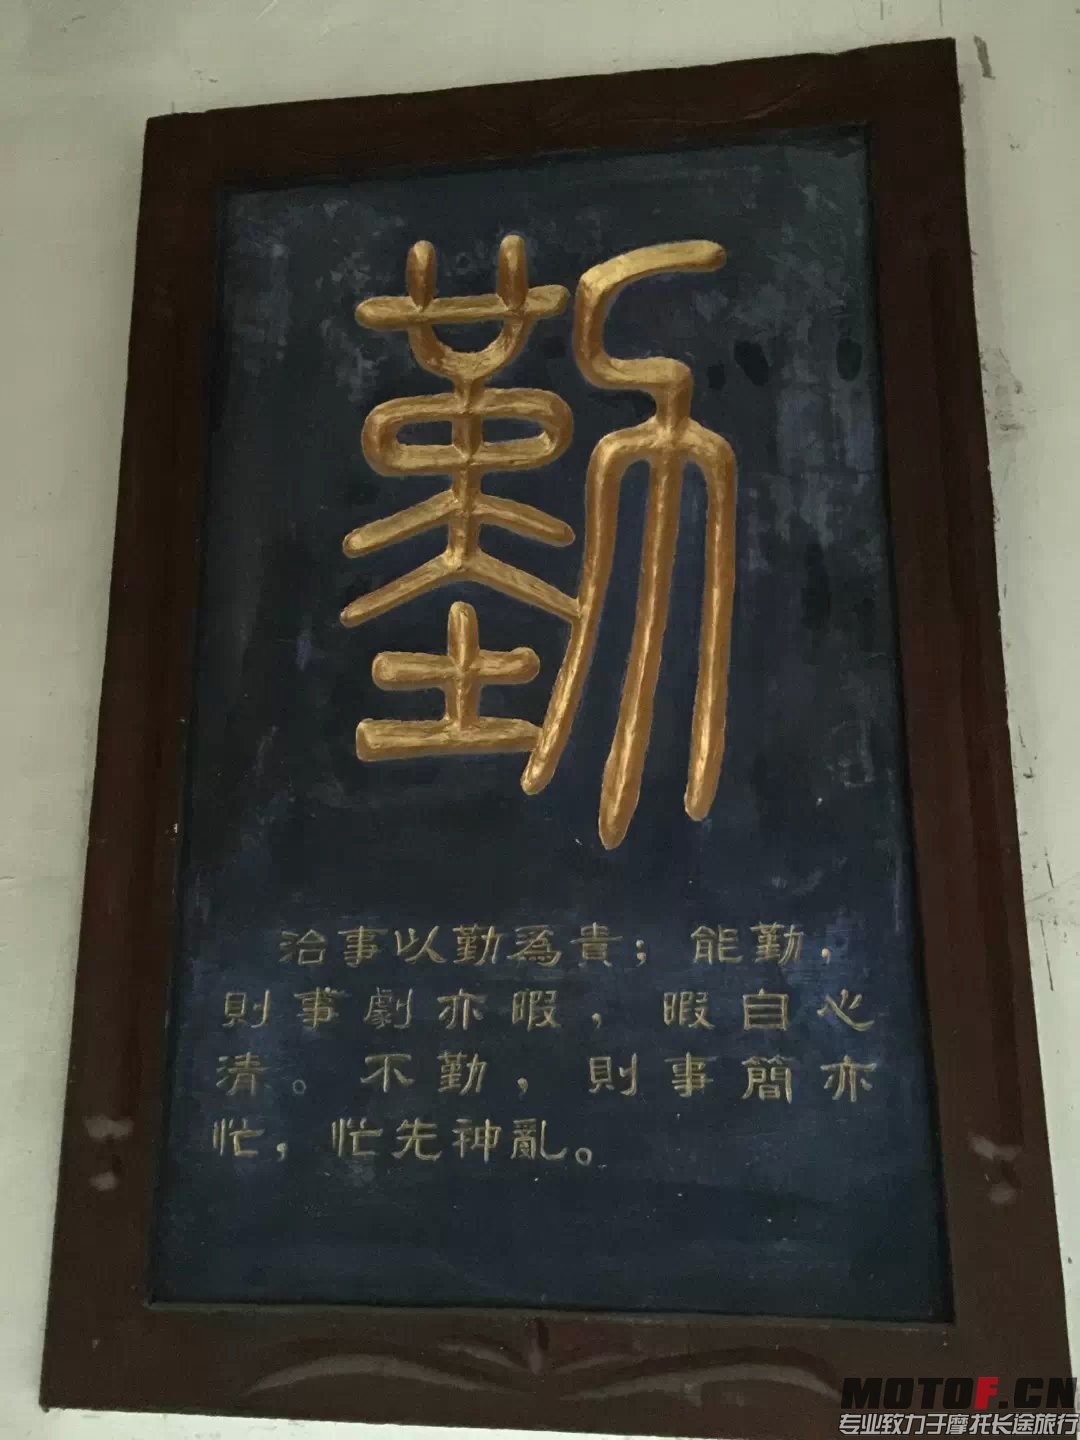 勤
治事以勤為貴；能勤，
則事劇亦暇，暇自心
清。不勤，則事簡亦
忙，忙先神亂。
MOTOF.CN
专业致力于摩托长途旅行